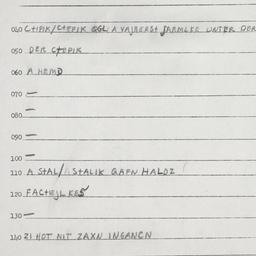 040 CTIPIK/CTEPIK OGL A VAJBERST ARMLEE UNTER DER
050 DER CTEPIK
060 A HEMD
070 —
080 —
090 —
100 —
110 A STAL/ STALIK GAFN HALDZ
120 FACTEJL KES
130 —
140 ZI HOT NIT ZAXN INGANCN